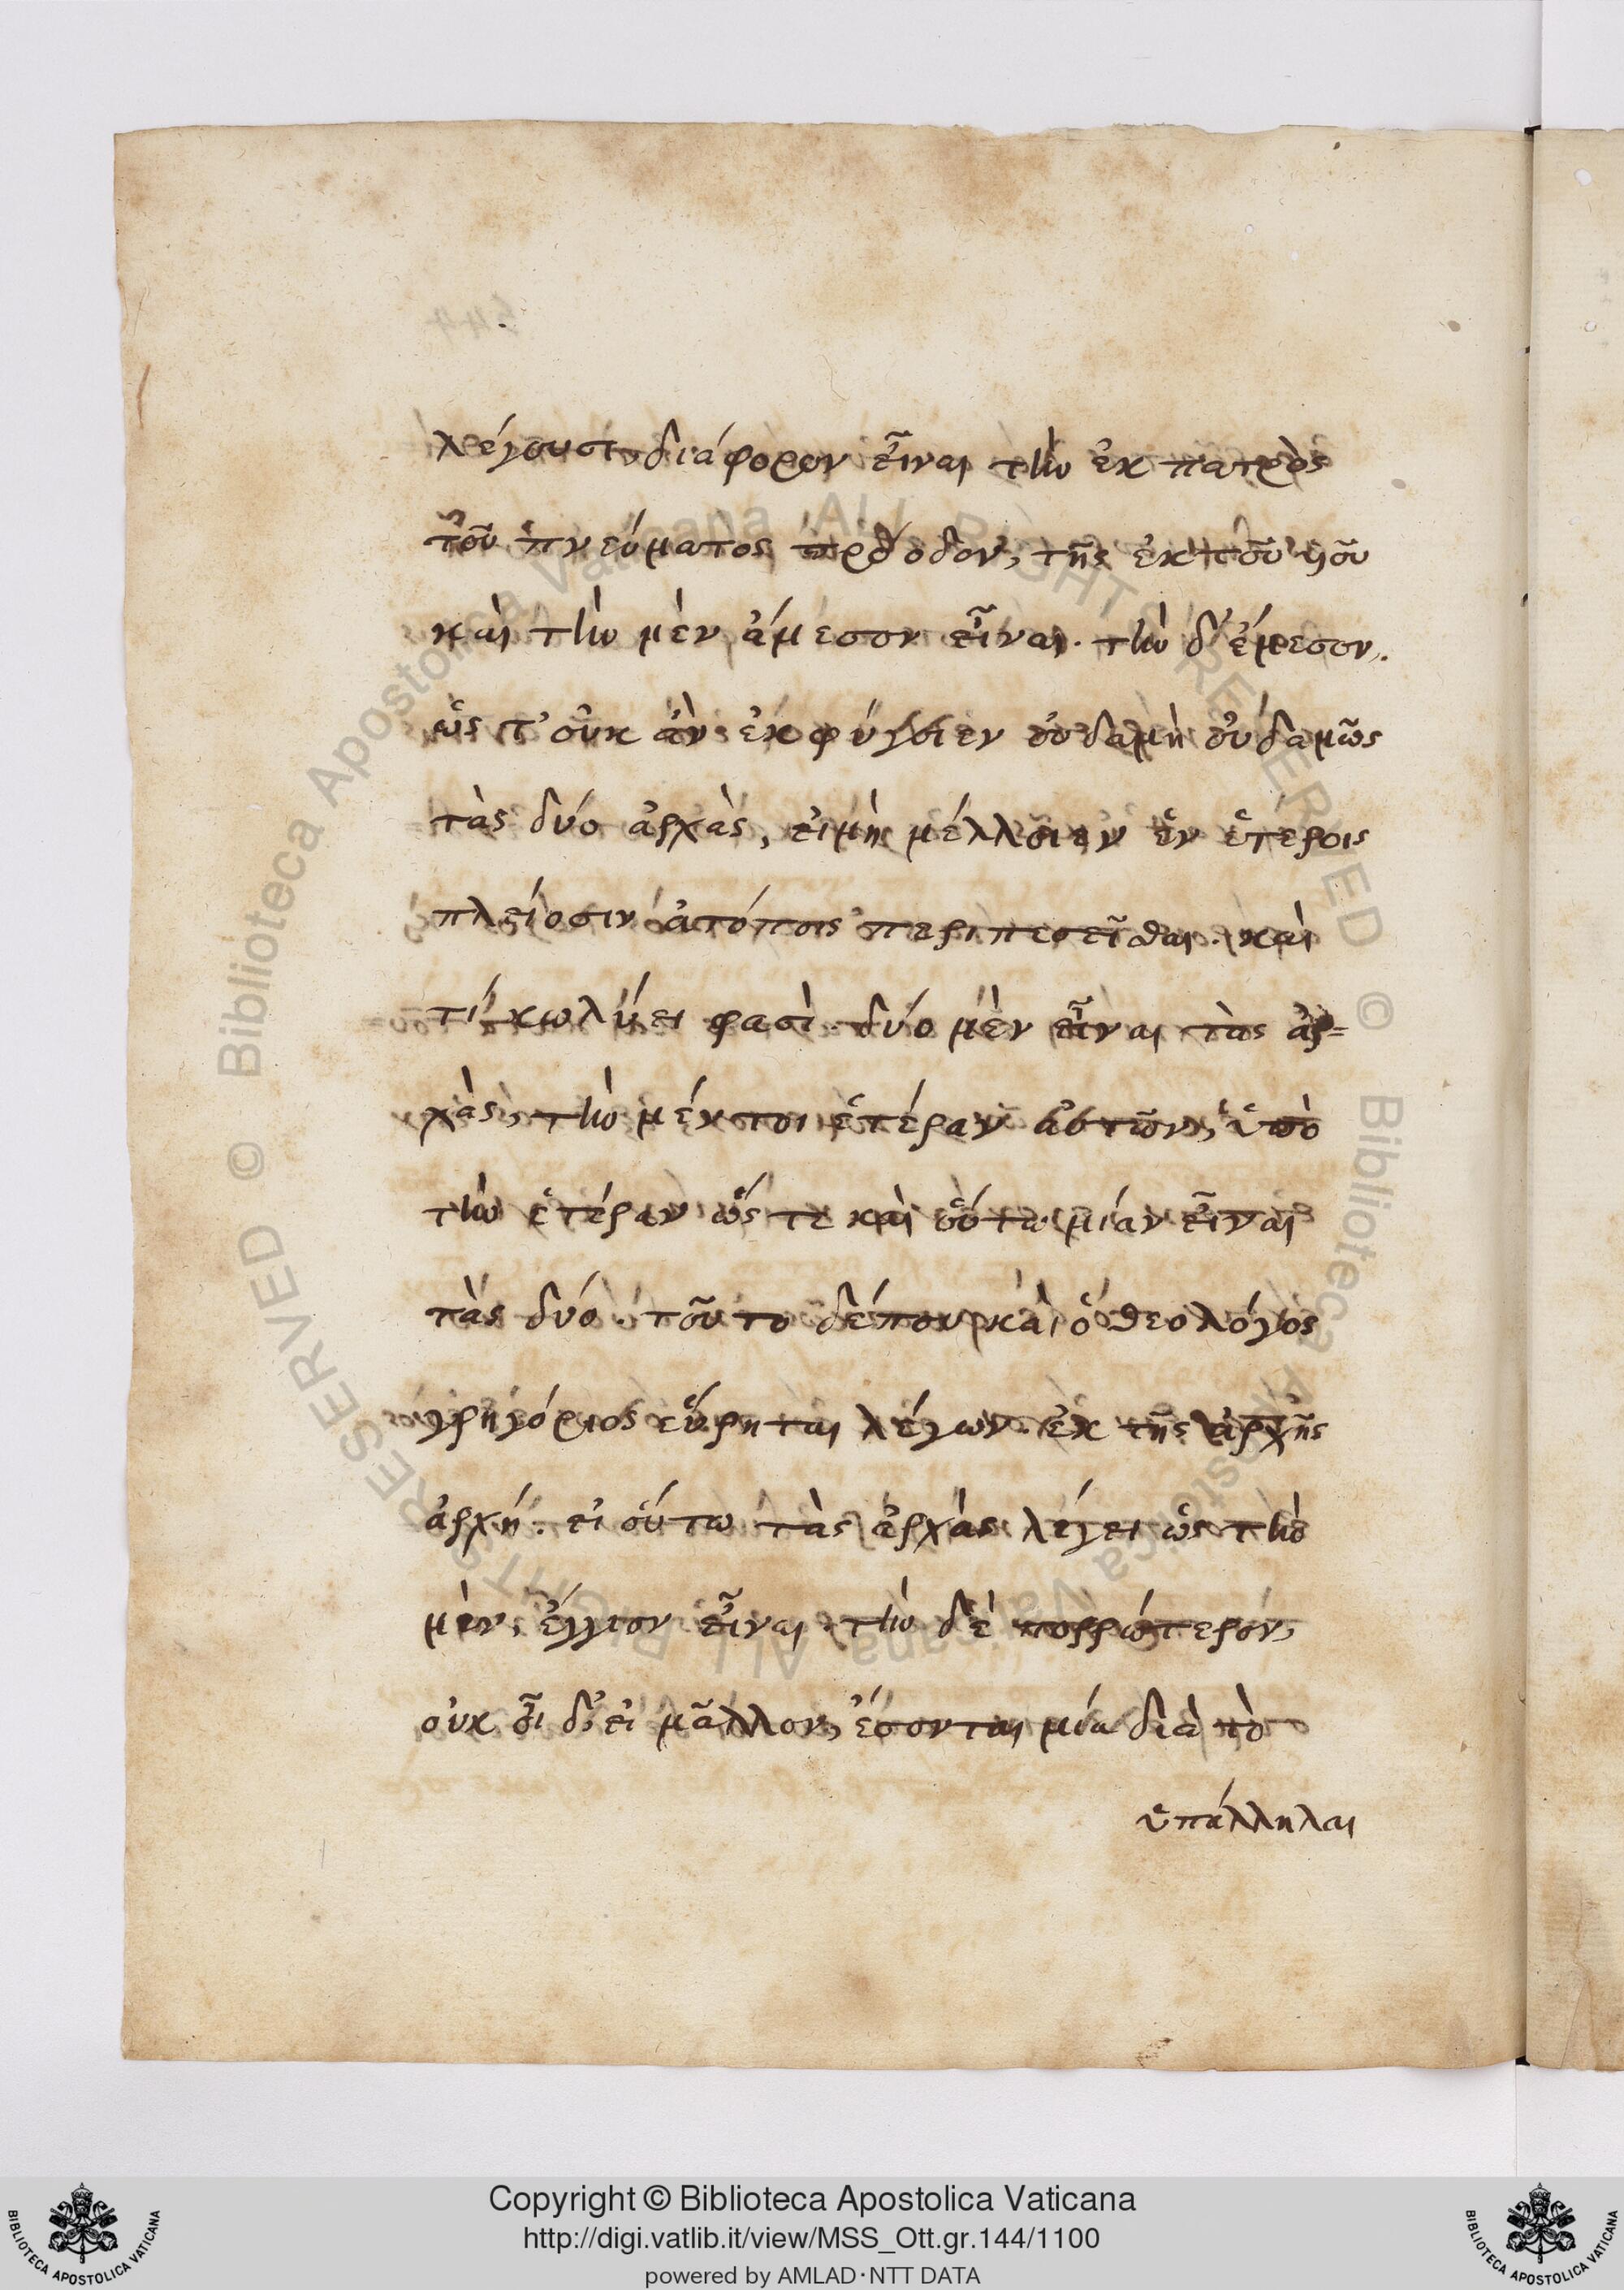 λέγουσι, διάφορον εἶναι τὴν ἐκ πατρὸς
τοῦ πνεύματος πρόοδον, τῆς ἐκ τοῦ υἱοῦ
καὶ τὴν μὲν ἄμεσον εἶναι. τὴν δ' ἔμεσον.
ὥς τ' οὐκ ἂν ἐκφύγοιεν οὐδαμῆ οὐδαμῶς
τὰς δύο ἀρχὰς, εἰμὴ μέλλοιεν ἐν ἑτέροις
πλείοσιν ἀτόποις περιπεσεῖσθαι. καὶ
τί κωλύει φασὶ δύο μὲν εἶναι τὰς ἀρ=
χὰς, τὴν μέντοι ἑτέραν αὐτῶν, ὑπὸ
τὴν ἑτέραν ὥς τε καὶ οὕτω μίαν εἶναι
τὰς δύο. τοῦτο δέπου καὶ ὁ θεολόγος
γρηγόριος εὕρηται λέγων. ἐκ τῆς ἀρχῆς
ἀρχή. εἰ οὕτω τὰς ἀρχὰς λέγει ὡς τὴν
μὲν, ἔγγιον εἶναι. τὴν δὲ πορρώτερον,
οὐκ οἶδ' εἰ μᾶλλον, ἔσονται μία διὰ τὸ
ὑπάλληλαι
Copyright © Biblioteca Apostolica Vaticana
http://digi.vatlib.it/view/MSS_Ott.gr.144/1100
powered by AMLAD·NTT DATA
BIBLIOTECA APOSTOLICA VATICANA
BIBLIOTECA APOSTOLICA VATICANA
© Biblioteca Apostolica Vaticana ALL RIGHTS RESERVED
© Biblioteca Apostolica Vaticana ALL RIGHTS RESERVED